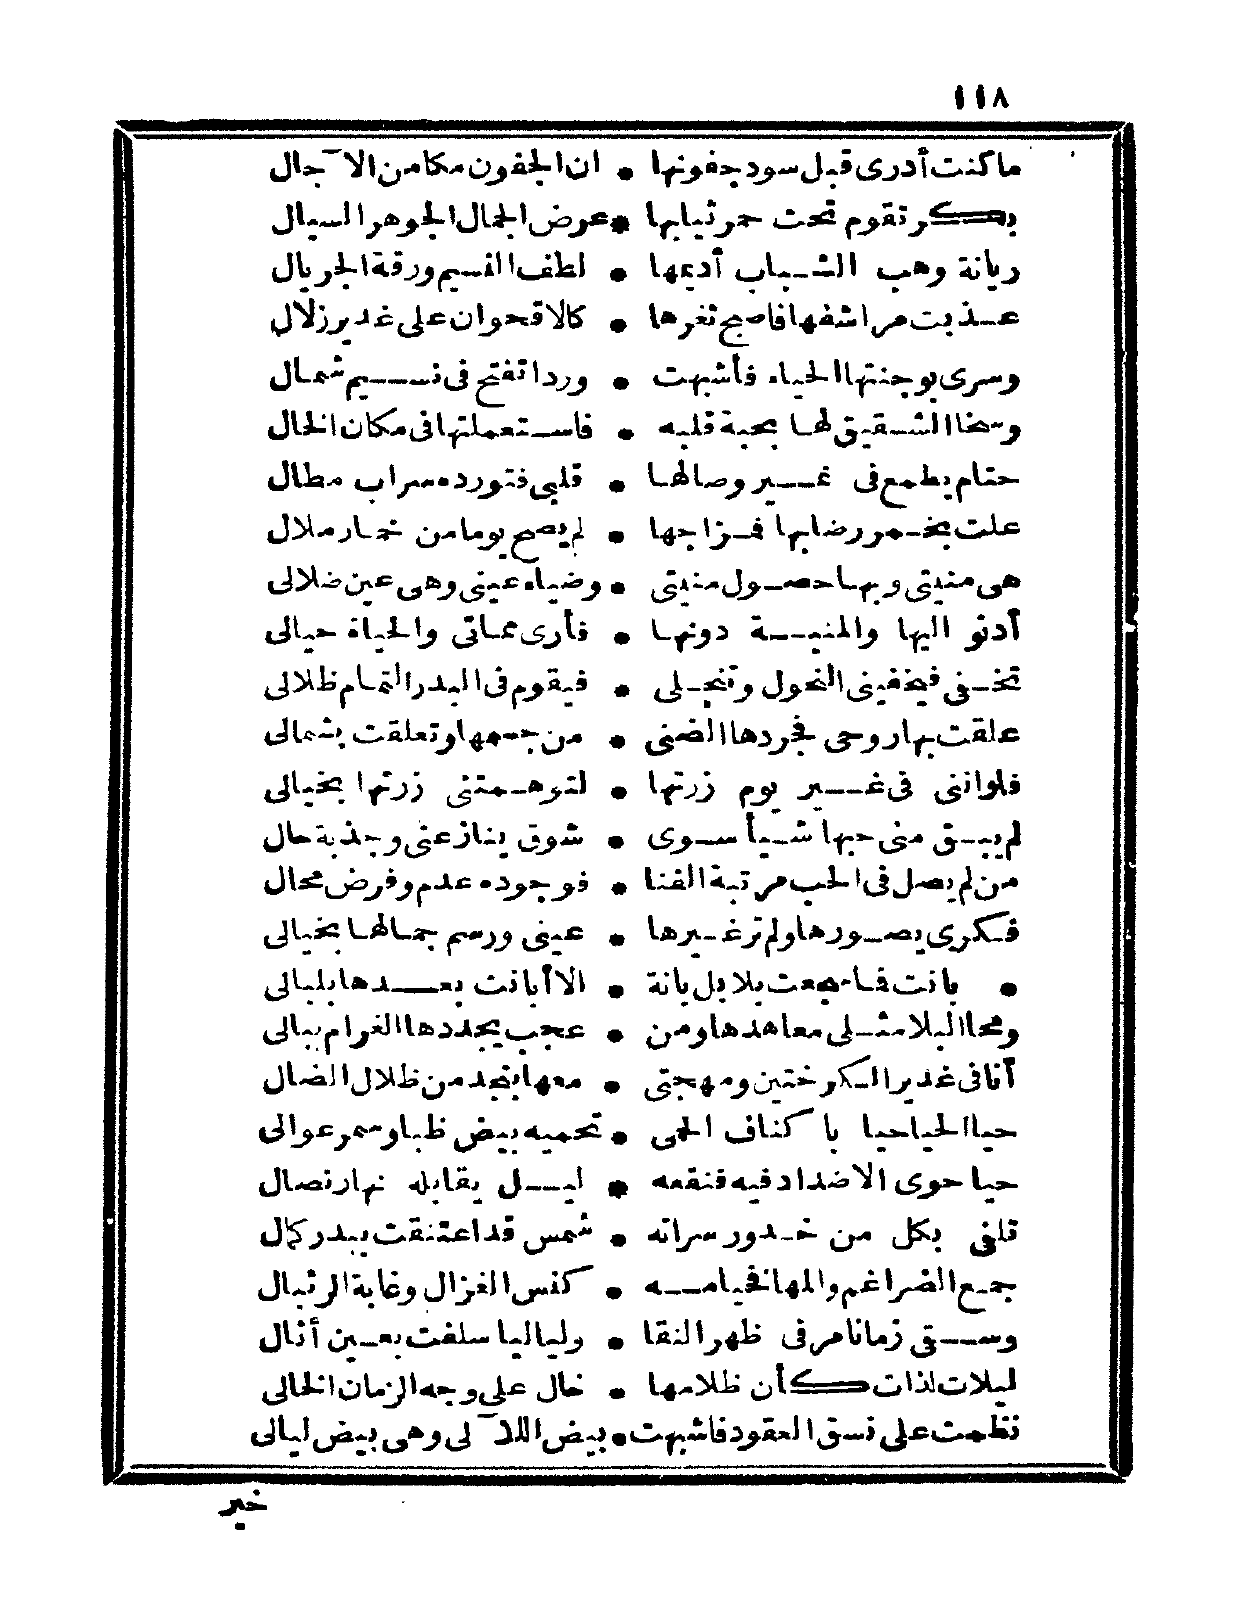 ١١٨
ما كنت أدرى قبل سود جفونها • ان الجفون مكامن الآجال
بكر تقوم تحت حمر ثيابها • عرض الجمال الجوهر السيال
ريانة وهب الشباب أديمها • لطف النسيم ورقة الجريال
عذبت مراشفها فاصبح ثغرها • كالاقحوان على غدير زلال
وسرى بوجنتها الحياء فأشبهت • وردا تفتح فى نسيم شمال
وسخا الشقيق لها بحبة قلبه • فاستعملتها فى مكان الخال
حتام يطمع فى غير وصالها • قلبى فتورده سراب مطال
علت بخمر رضابها فزاجها • لم يصح يوما من خمار ملال
هى منيتى وبها حصول منيتى • وضياء عينى وهى عين ضلالى
أدنو اليها والمنية دونها • فأرى مماتى والحياة حيالى
تخفى فيخفينى النحول وتنجلى • فيقوم فى البدر التمام ظلالى
علقت بها روحى فجردها الضنى • من جسمها وتعلقت بشمالى
فلو اننى فى غير يوم زرتها • لتوهمتنى زرتها بخيالى
لم يبق منى حبها شيأ سوى • شوق ينازعنى وجذبة حال
من لم يصل فى الحب مرتبة الفنا • فوجوده عدم وفرض محال
فكرى يصورها ولم تر غيرها • عينى ورسم جمالها بخيالى
• بانت فما سجعت بلابل بانة • الا أبانت بعدها بلبالى
ومحا البلا مثلى معاهدها ومن • عجب يجددها الغرام ببالى
أنا فى غدير الكرختين ومهجتى • معها بنجد من ظلال الضال
حيا الحيا حيا بأكناف الحمى • تحميه بيض ظبا وسمر عوالى
حيا حوى الاضداد فيه فنقعه • ليل يقابله نهار نصال
تلقى بكل من خدور سراته • شمس قد اعتنقت ببدر كمال
جمع الضراغم والمها فخيامه • كنس الغزال وغابة الرئبال
وسقى زمانا مر فى ظهر النقا • ولياليا سلفت بعين أثال
ليلات لذات كأن ظلامها • خال على وجه الزمان الخالى
نظمت على نسق العقود فاشبهت • بيض اللآلى وهى بيض ليالى
خير